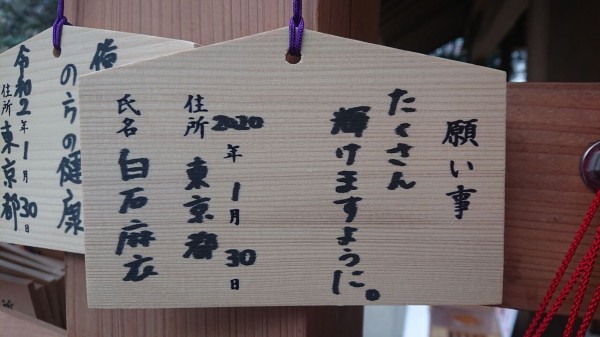 願い事
たくさん
輝けますように。
2020年1月30日
住所 東京都
氏名 白石麻衣
の方の健康
令和2年1月30日
住所 東京都